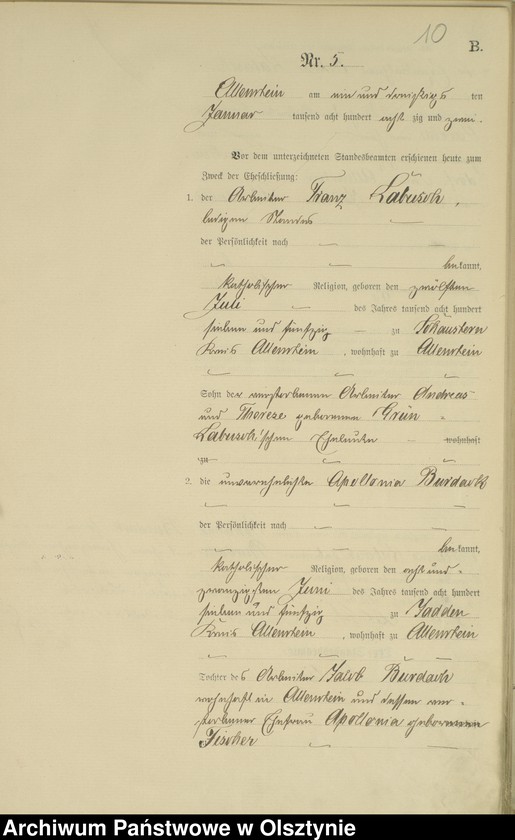 10
B.
Nr. 5.
Allenstein am ein und dreißigs ten
Januar tausend acht hundert acht zig und zwei.
Vor dem unterzeichneten Standesbeamten erschienen heute zum
Zweck der Eheschließung:
1. der Arbeiter Franz Labusch,
ledigen Standes
der Persönlichkeit nach
bekannt,
katholischer Religion, geboren den zwölften
Juli des Jahres tausend acht hundert
sieben und fünfzig zu Schaustern
Kreis Allenstein, wohnhaft zu Allenstein
Sohn der verstorbenen Arbeiter Andreas
und Therese geborenen Grün
Labusch'schen Eheleute wohnhaft
zu
2. die unverehelichte Apollonia Burdack
der Persönlichkeit nach
bekannt,
katholischer Religion, geboren den acht und
zwanzigsten Juni des Jahres tausend acht hundert
sieben und fünfzig zu Jadden
Kreis Allenstein, wohnhaft zu Allenstein
Tochter des Arbeiter Jacob Burdach
wohnhaft in Allenstein und dessen ver-
storbener Ehefrau Apollonia geborenen
Fischer
Archiwum Państwowe w Olsztynie